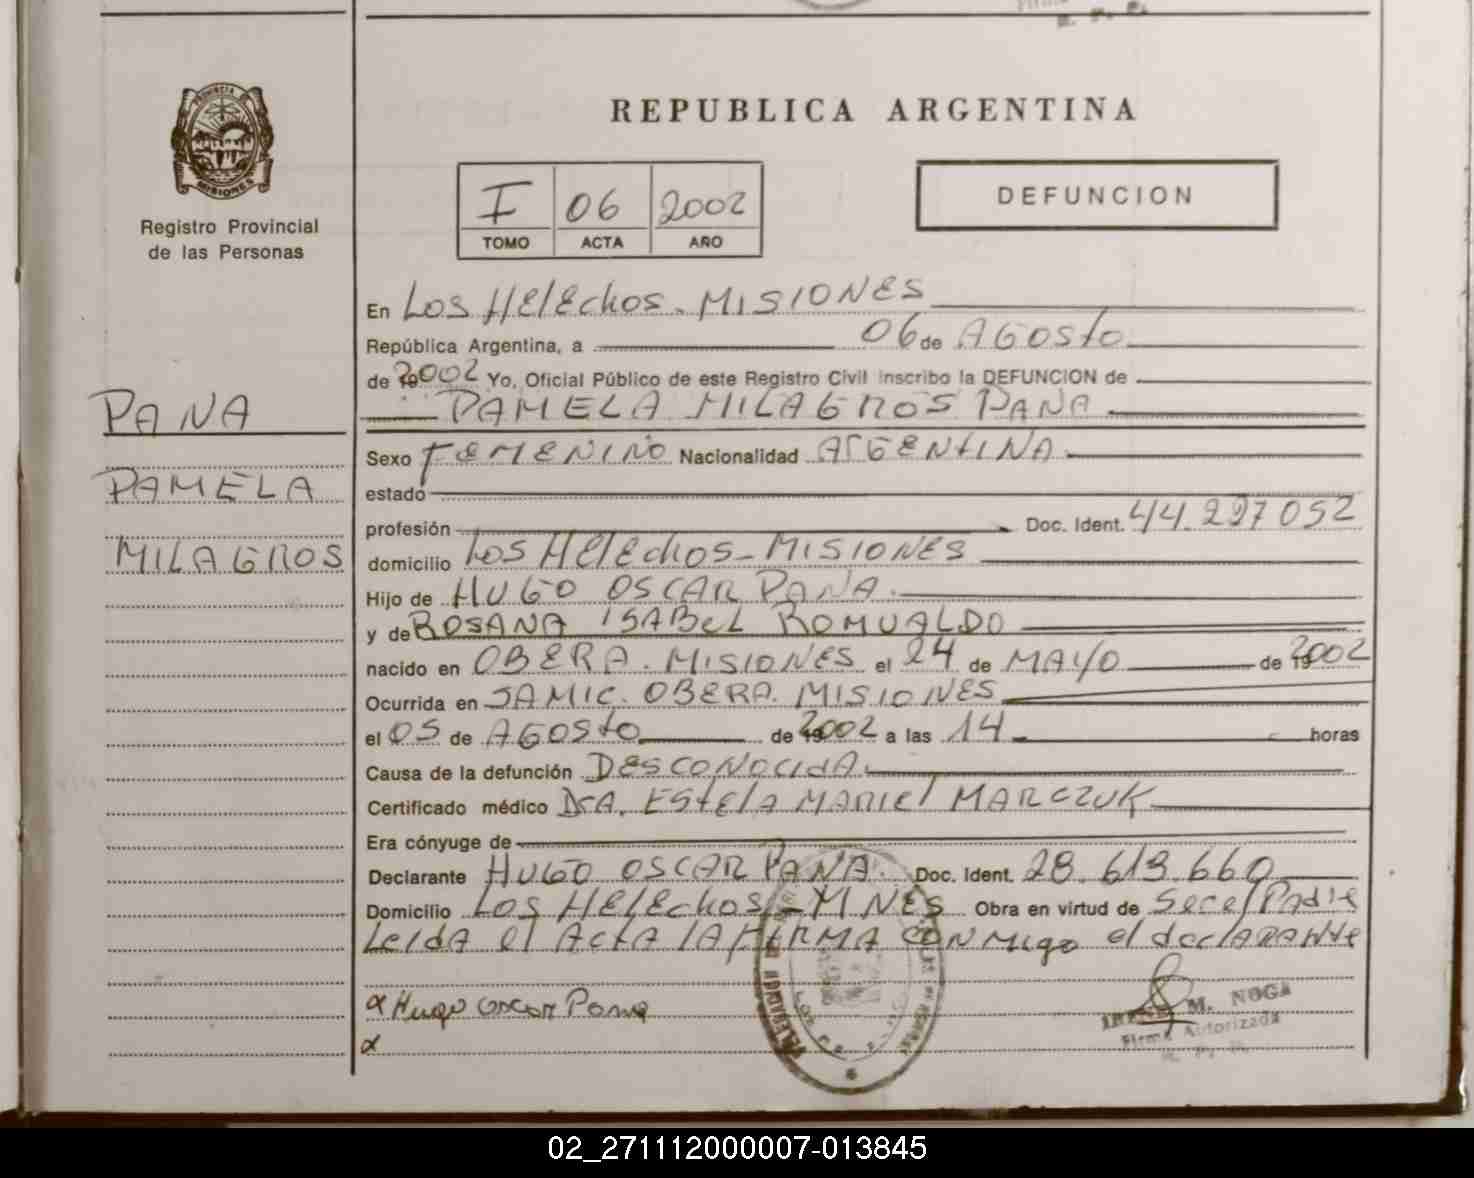 PROVINCIA DE
MISIONES
Registro Provincial
de las Personas
REPUBLICA ARGENTINA
I 06 2002
TOMO ACTA AÑO
DEFUNCION
En Los HElEchos. MISIONES
República Argentina, a 06 de AGOSto
de 2002 Yo, Oficial Público de este Registro Civil inscribo la DEFUNCION de
PAMELA MILAGROS PANA
Sexo FEMENINO Nacionalidad ARGENtINA
estado
profesión Doc. Ident. 44.297052
domicilio Los HElEchos - MISIONES
Hijo de HUGO OSCAR PANA.
y de ROSANA ISABEL ROMUALDO
nacido en OBERA. MISIONES el 24 de MAYO de 2002
Ocurrida en SAMIC. OBERA. MISIONES
el 05 de AGOSto de 2002 a las 14 horas
Causa de la defunción DESCONOCIdA
Certificado médico DrA. EStElA MARIEl MARCZUK
Era cónyuge de
Declarante HUGO OSCAR PANA. Doc. Ident. 28.613.660
Domicilio Los HElEchos - MNES Obra en virtud de Ser el Padre
Leida el Acta la FIRMA CONMigo el declARANte
Hugo Oscar Pana
M. NOGA
Firma Autorizada
PANA
PAMELA
MILAGROS
02_271112000007-013845